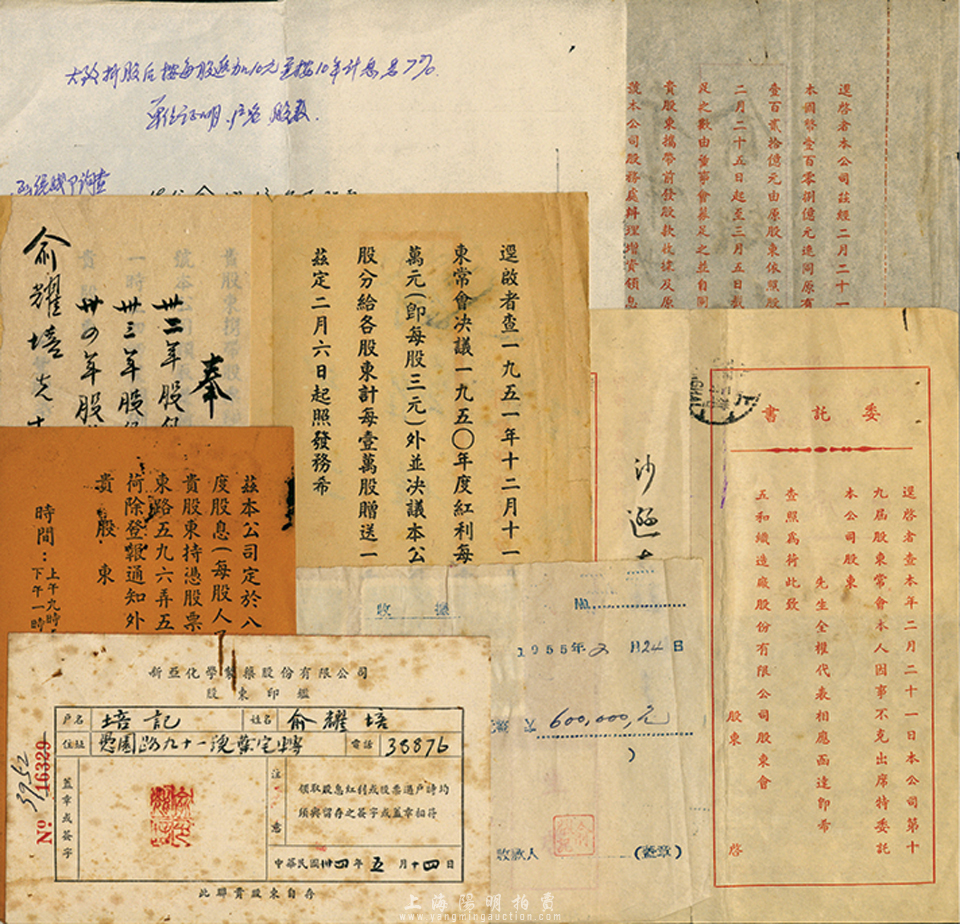 大致折股后按每股返加10元至按10年计息息7%
單位证明、户名 股數
逕啓者本公司茲經二月二十一
本國幣壹百零捌億元連同原有
壹百貳拾億元由原股東依照股
二月二十五日起至三月五日截
足之數由董事會募足之並自同
貴股東攜帶前發股款收據及原
號本公司股務處辦理增資領息
逕啟者查一九五一年十二月十一
東常會決議一九五〇年度紅利每
萬元(即每股三元)外並決議本公
股分給各股東計每壹萬股贈送一
茲定二月六日起照發務希
奉
卅二年股
卅三年股
卅四年股
俞耀培先
委託書
逕啓者查本年二月二十一日本公司第十
九屆股東常會本人因事不克出席特委託
本公司股東
先生全權代表相應函達即希
查照爲荷此致
五和織造廠股份有限公司股東會
股東 啓
沙遜
茲本公司定於八
度股息(每股人
貴股東持憑股票
東路五九六弄五
荷除登報通知外
貴股東
時間:上午九時
下午一時
收據
№
1955年2月24日
600,000元
)
收款人 (蓋章)
新亞化學製藥股份有限公司
股東印鑑
户名 培記 姓名 俞耀培
住址 愚園路九十一號葉定轉 電話 38876
蓋章或簽字
注意
領取股息紅利或股票過戶時均
須與留存之簽字或蓋章相符
中華民國卅四年五月十四日
此聯貴股東自存
№ 16329
3952
上海陽明拍賣
www.yangmingauction.com